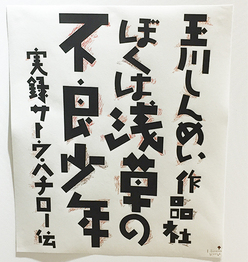 玉川しんめい 作品社
ぼくは浅草の
不良少年
実録サトウ・ハチロー伝